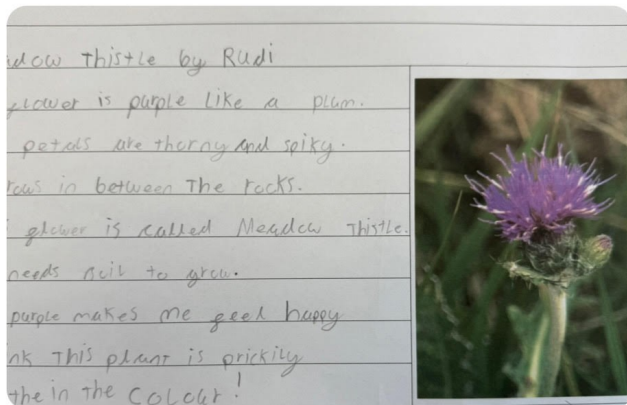 dow Thistle by Rudi
flower is purple like a plum.
petals are thorny and spiky.
rows in between The rocks.
flower is called Meadow Thistle.
needs soil to grow.
purple makes me feel happy
nk This plant is prickily
the in the colour!